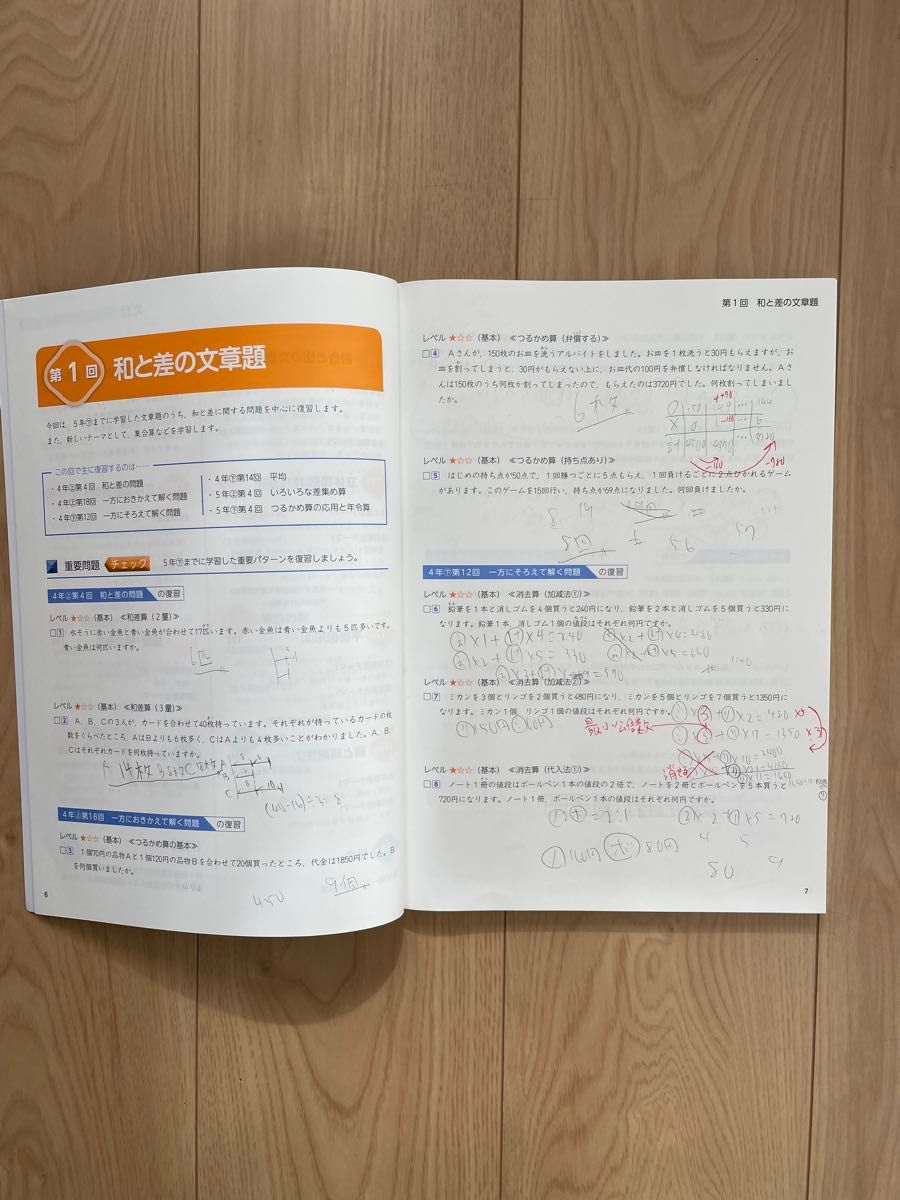 第1回 和と差の文章題
今回は、5年㊦までに学習した文章題のうち、和と差に関する問題を中心に復習します。
また、新しいテーマとして、集合算などを学習します。
この回で主に復習するのは……
・4年㊤第4回 和と差の問題
・4年㊤第18回 一方におきかえて解く問題
・4年㊦第12回 一方にそろえて解く問題
・4年㊦第14回 平均
・5年㊤第4回 いろいろな差集め算
・5年㊦第4回 つるかめ算の応用と年令算
重要問題 チェック 5年㊦までに学習した重要パターンを復習しましょう。
4年㊤第4回 和と差の問題 の復習
レベル★☆☆（基本）≪和差算（2量）≫
□1 水そうに赤い金魚と青い金魚が合わせて17匹います。赤い金魚は青い金魚よりも5匹多いです。
青い金魚は何匹いますか。
6匹
レベル★☆☆（基本）≪和差算（3量）≫
□2 A、B、Cの3人が、カードを合わせて40枚持っています。それぞれが持っているカードの枚
数をくらべたところ、AはBよりも6枚多く、CはAよりも4枚多いことがわかりました。A、B、
Cはそれぞれカードを何枚持っていますか。
A 14枚 B 8枚 C 18枚
A
B
C
(40-16)÷3=8
4年㊤第18回 一方におきかえて解く問題 の復習
レベル★☆☆（基本）≪つるかめ算の基本≫
□3 1個70円の品物Aと1個120円の品物Bを合わせて20個買ったところ、代金は1850円でした。B
を何個買いましたか。
450 9個
6
第1回 和と差の文章題
レベル★☆☆（基本）≪つるかめ算（弁償する）≫
□4 Aさんが、150枚のお皿を洗うアルバイトをしました。お皿を1枚洗うと30円もらえますが、お
皿を割ってしまうと、30円がもらえない上に、お皿代の100円を弁償しなければなりません。Aさ
んは150枚のうち何枚か割ってしまったので、もらえたのは3720円でした。何枚割ってしまいまし
たか。
6枚
○ 150 149 … 144
× 0 1 … 6
-130 -780
レベル★☆☆（基本）≪つるかめ算（持ち点あり）≫
□5 はじめの持ち点が50点で、1回勝つごとに5点もらえ、1回負けるごとに2点ひかれるゲーム
があります。このゲームを15回行い、持ち点が69点になりました。何回負けましたか。
8回
56
4年㊦第12回 一方にそろえて解く問題 の復習
レベル★☆☆（基本）≪消去算（加減法①）≫
□6 鉛筆を1本と消しゴムを4個買うと240円になり、鉛筆を2本と消しゴムを5個買うと330円に
なります。鉛筆1本、消しゴム1個の値段はそれぞれ何円ですか。
レベル★☆☆（基本）≪消去算（加減法②）≫
□7 ミカンを3個とリンゴを2個買うと480円になり、ミカンを5個とリンゴを7個買うと1350円に
なります。ミカン1個、リンゴ1個の値段はそれぞれ何円ですか。
最小公倍数
レベル★☆☆（基本）≪消去算（代入法①）≫
□8 ノート1冊の値段はボールペン1本の値段の2倍で、ノートを2冊とボールペンを5本買うと
720円になります。ノート1冊、ボールペン1本の値段はそれぞれ何円ですか。
ノ 160円 ボ 80円
80 9
7